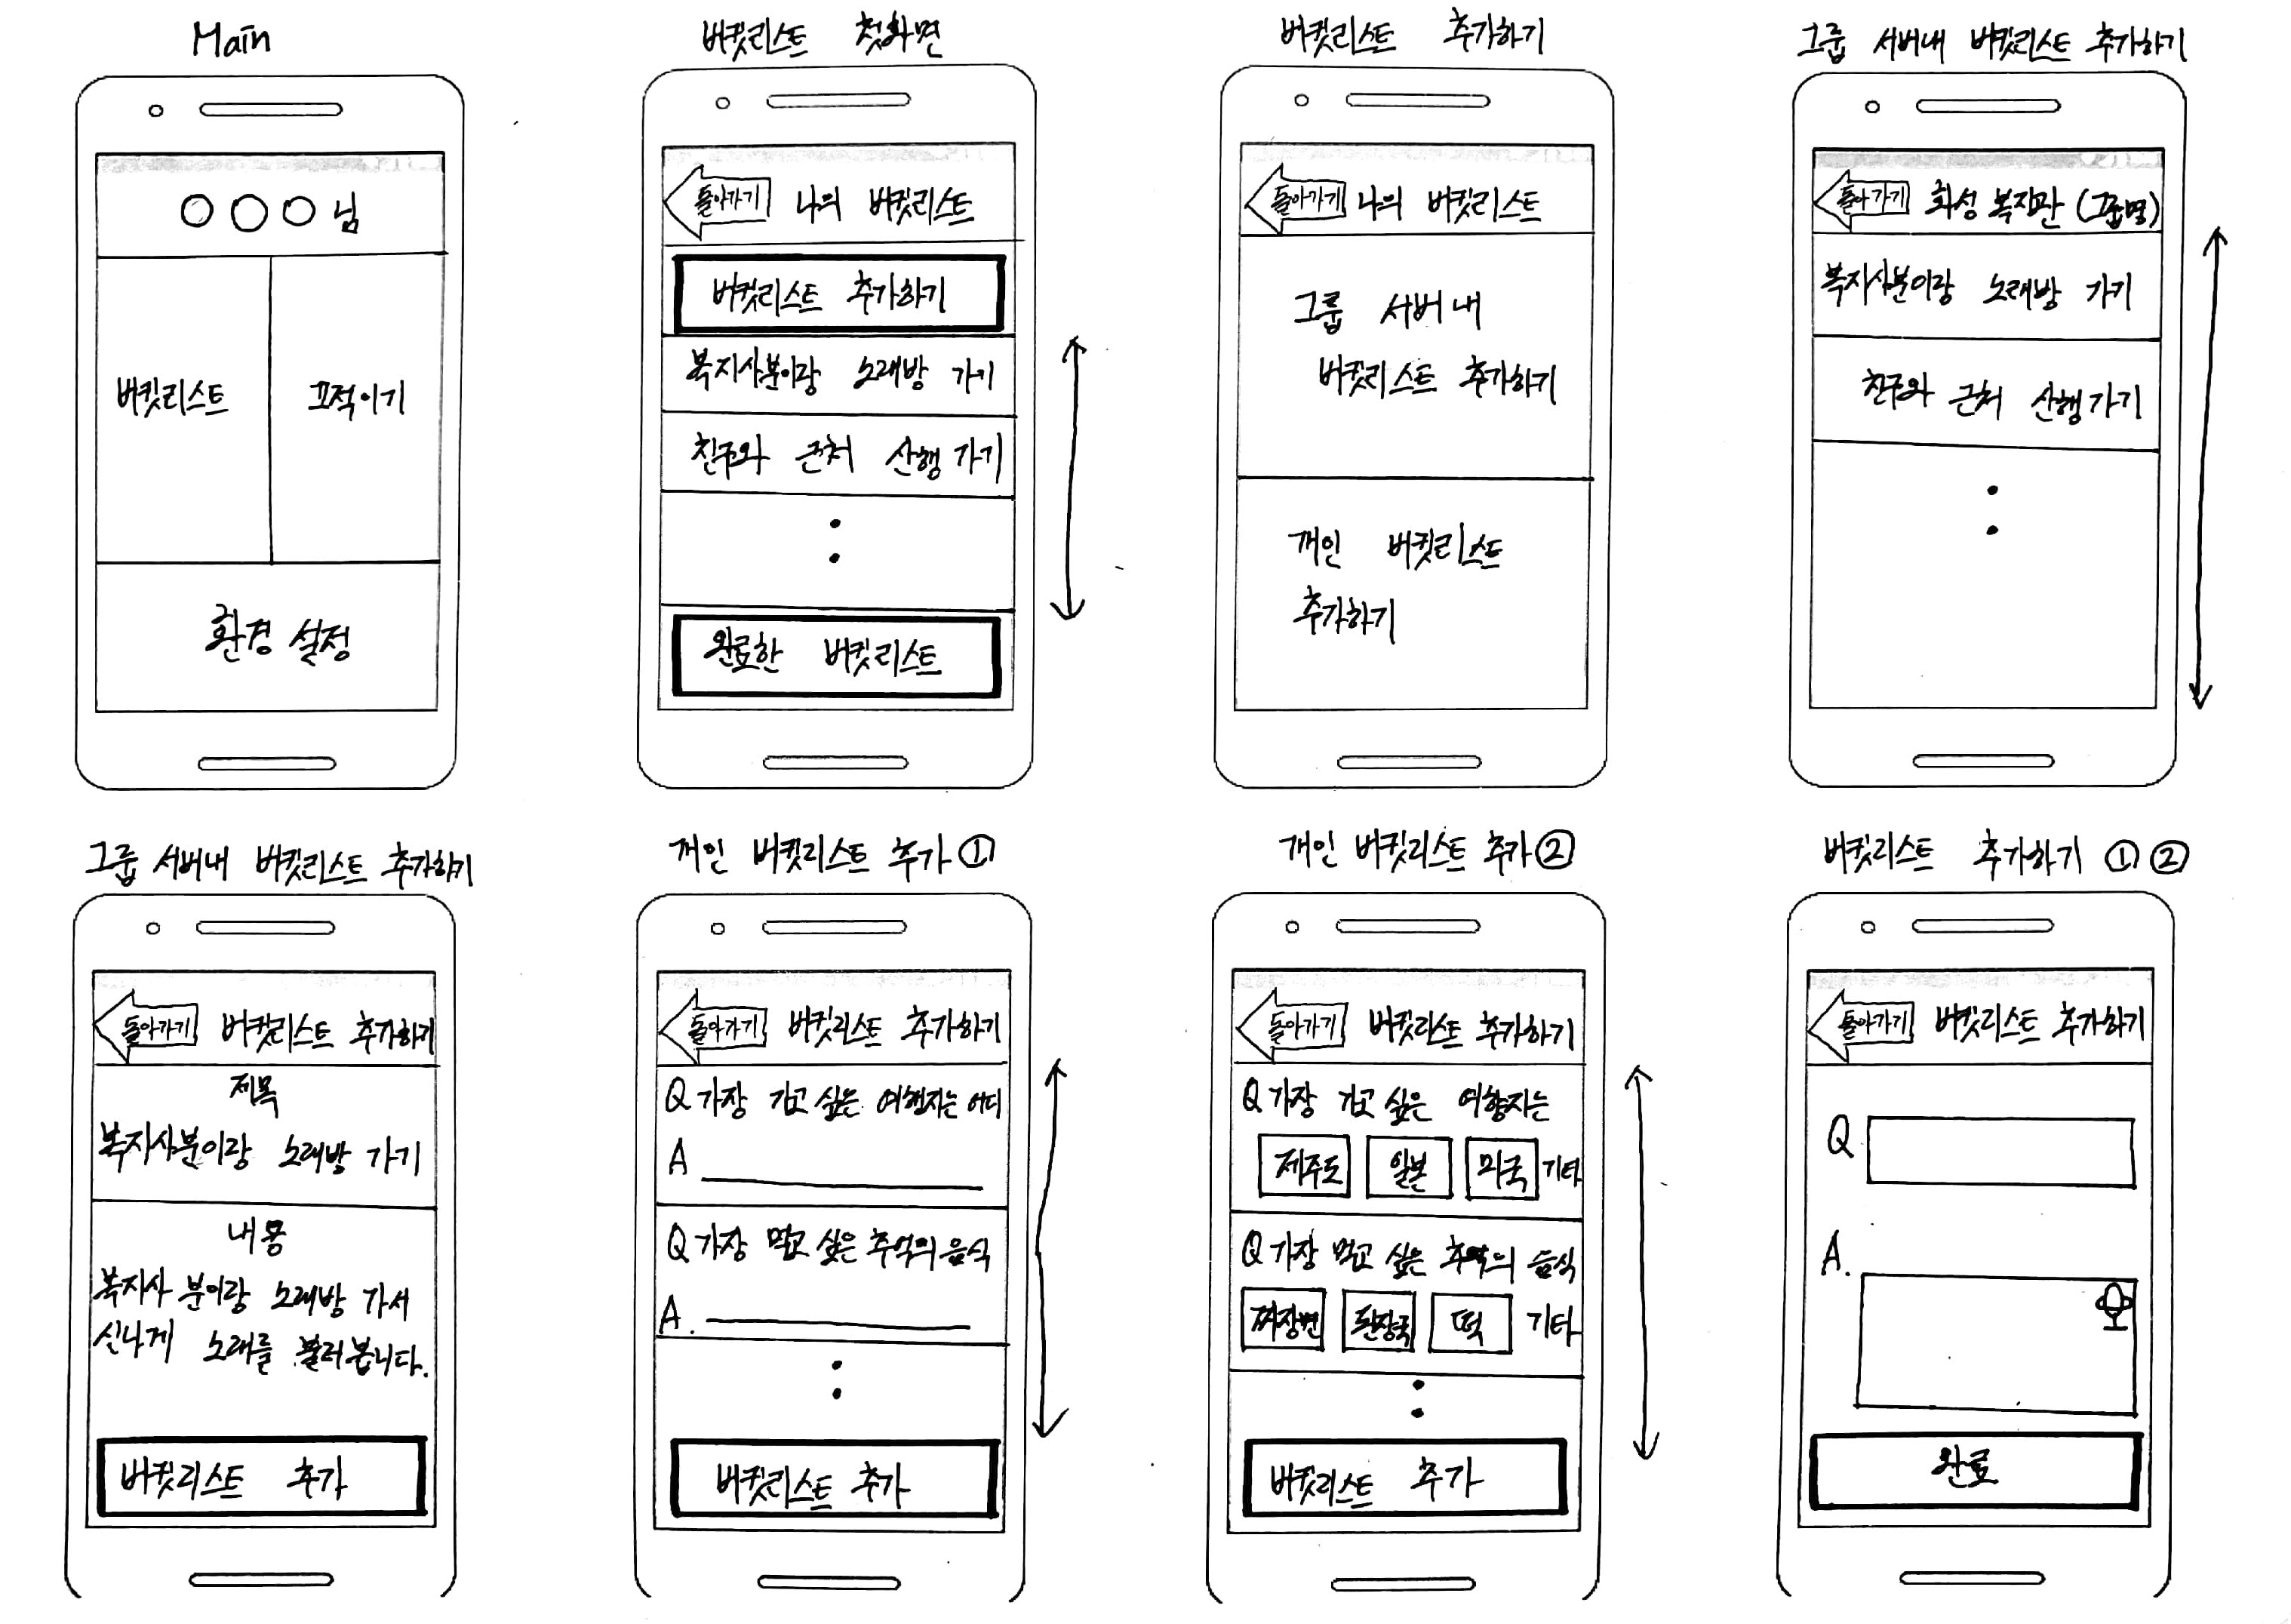 Main
○○○님
버킷리스트
끄적이기
환경 설정
버킷리스트 첫화면
돌아가기 나의 버킷리스트
버킷리스트 추가하기
복지사분이랑 노래방 가기
친구와 근처 산행 가기
완료한 버킷리스트
버킷리스트 추가하기
돌아가기 나의 버킷리스트
그룹 서버 내
버킷리스트 추가하기
개인 버킷리스트
추가하기
그룹 서버내 버킷리스트 추가하기
돌아가기 화성 복지관 (그룹명)
복지사분이랑 노래방 가기
친구와 근처 산행 가기
그룹 서버내 버킷리스트 추가하기
돌아가기 버킷리스트 추가하기
제목
복지사분이랑 노래방 가기
내용
복지사 분이랑 노래방 가서
신나게 노래를 불러봅니다.
버킷리스트 추가
개인 버킷리스트 추가 ①
돌아가기 버킷리스트 추가하기
Q 가장 가고 싶은 여행지는 어디
A
Q 가장 먹고 싶은 추억의 음식
A.
버킷리스트 추가
개인 버킷리스트 추가 ②
돌아가기 버킷리스트 추가하기
Q 가장 가고 싶은 여행지는
제주도 일본 미국 기타
Q 가장 먹고 싶은 추억의 음식
짜장면 된장국 떡 기타
버킷리스트 추가
버킷리스트 추가하기 ① ②
돌아가기 버킷리스트 추가하기
Q
A.
완료